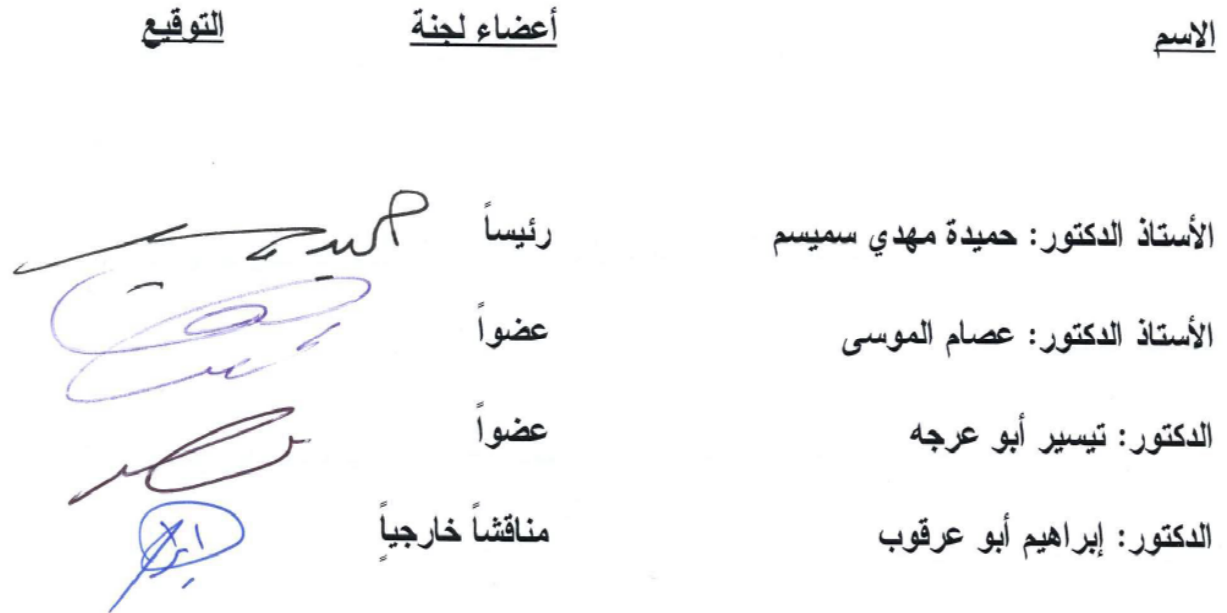 الاسم أعضاء لجنة التوقيع
الأستاذ الدكتور: حميدة مهدي سميسم رئيساً
الأستاذ الدكتور: عصام الموسى عضواً
الدكتور: تيسير أبو عرجه عضواً
الدكتور: إبراهيم أبو عرقوب مناقشاً خارجياً